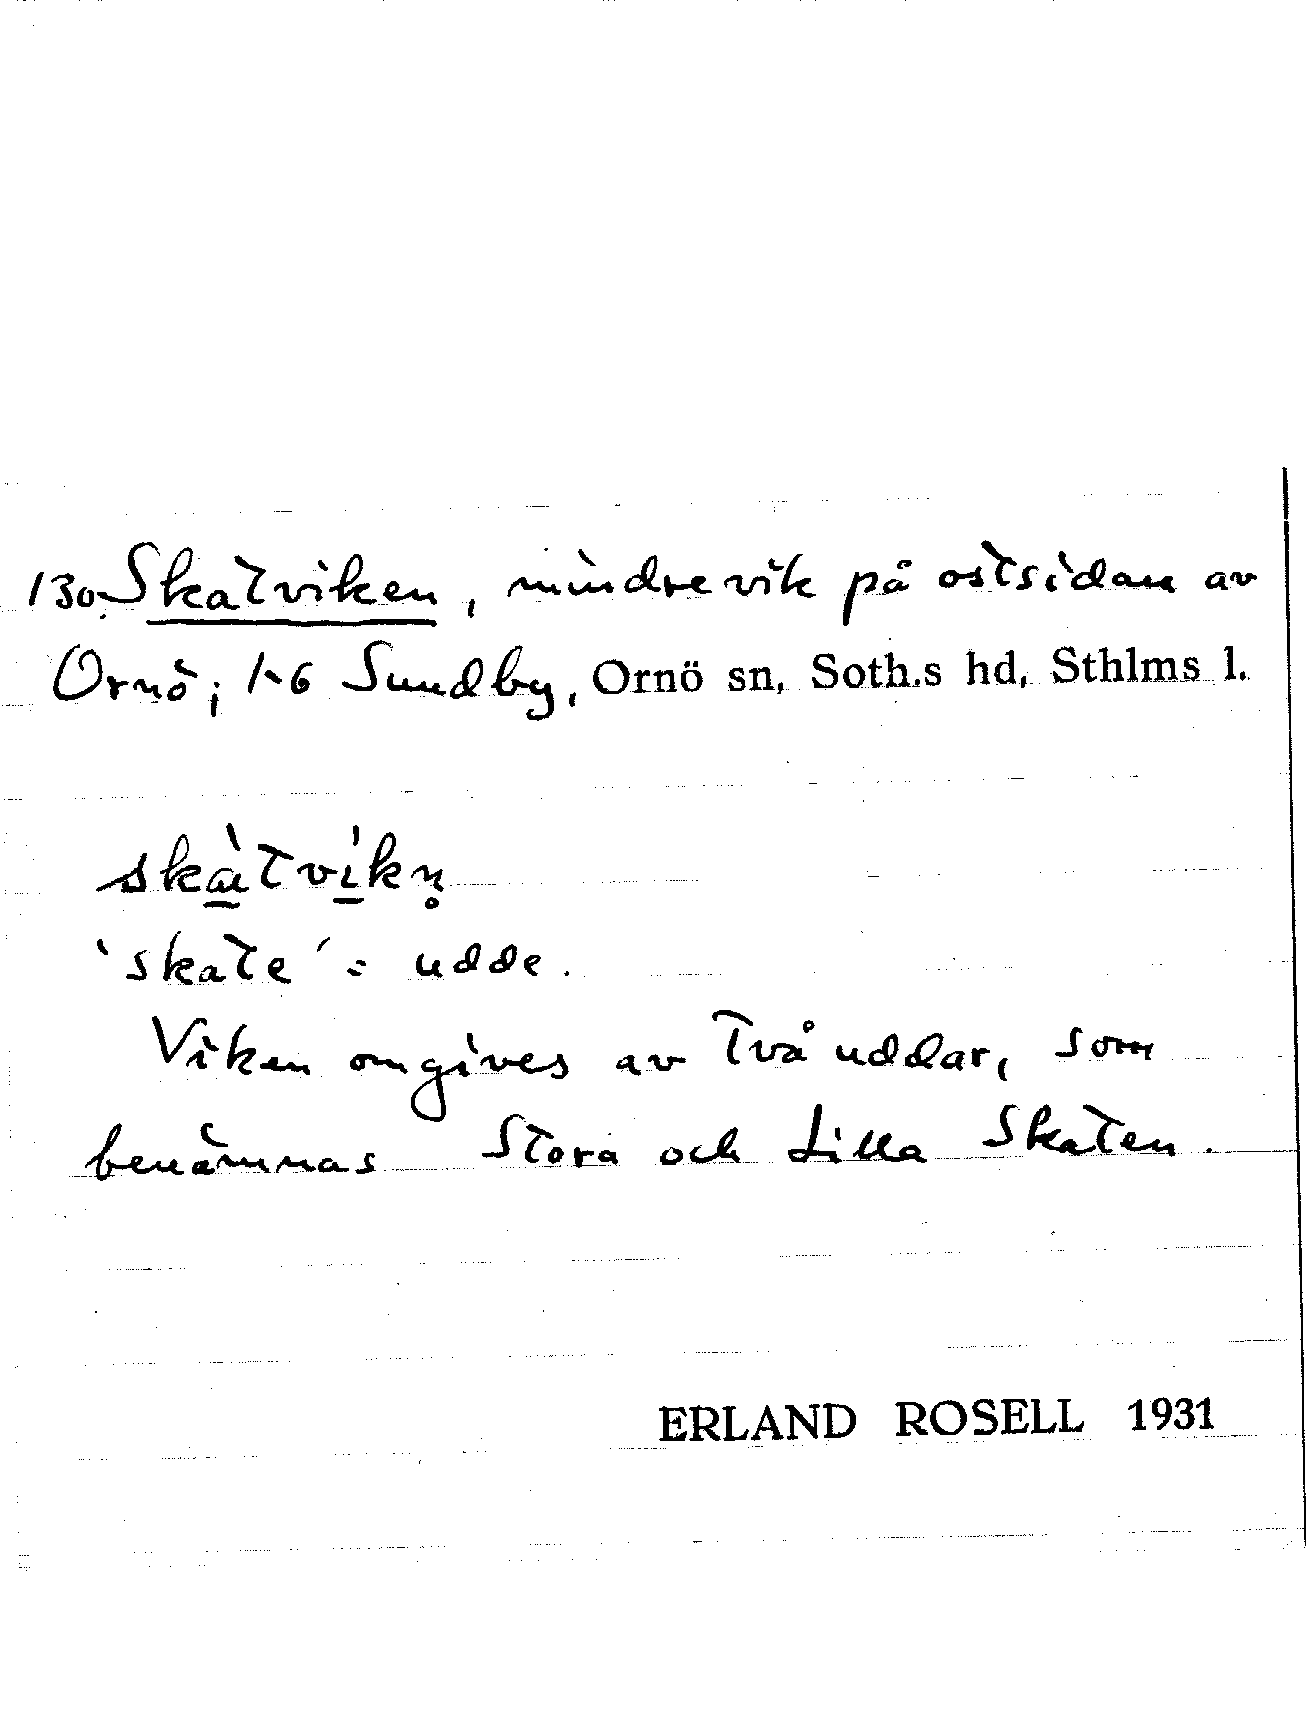 130. Skatviken, mindre vik på ostsidan av
Ornö; 1-6 Sundby, Ornö sn, Soth.s hd, Sthlms l.
skàtvíkn̥
'skate' = udde.
Viken omgives av två uddar, som
benämnas Stora och Lilla Skaten.
ERLAND ROSELL 1931